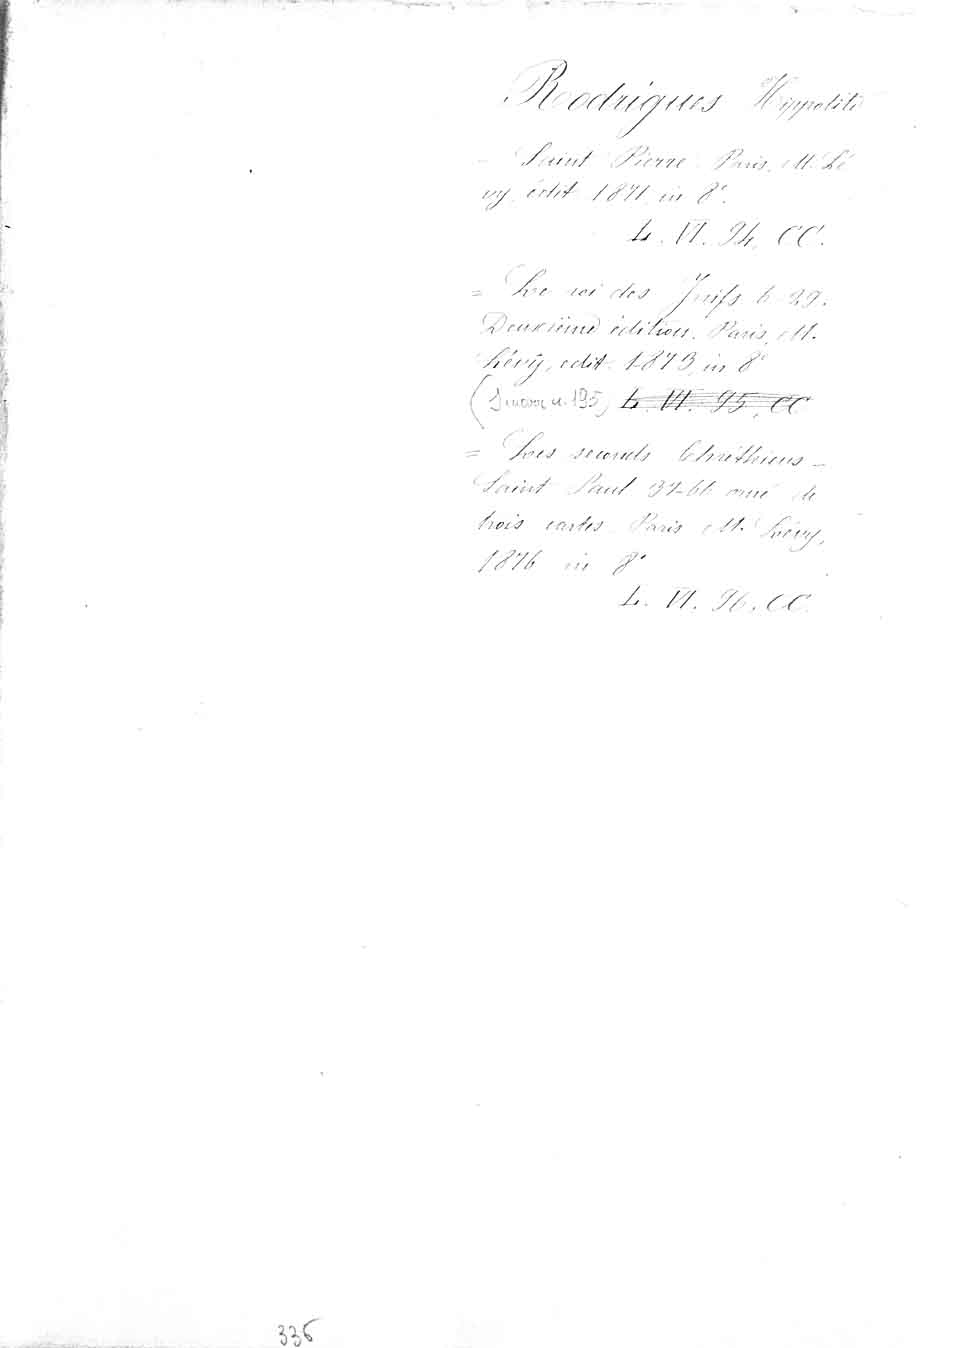 Rodrigues Hippolite
- Saint Pierre. Paris, M. Lé
vy, édit. 1871, in 8°.
L. VI. 94. CC.
= Le roi des Juifs 6-29.
Deuxième édition. Paris, M.
Lévy, edit. 1873, in 8°
( n. 195) L. VI. 95. CC
= Les seconds Chréthiens -
Saint Paul 37-66 orné de
trois cartes. Paris M. Lévy,
1876 in 8°
L. VI. 96. CC.
336